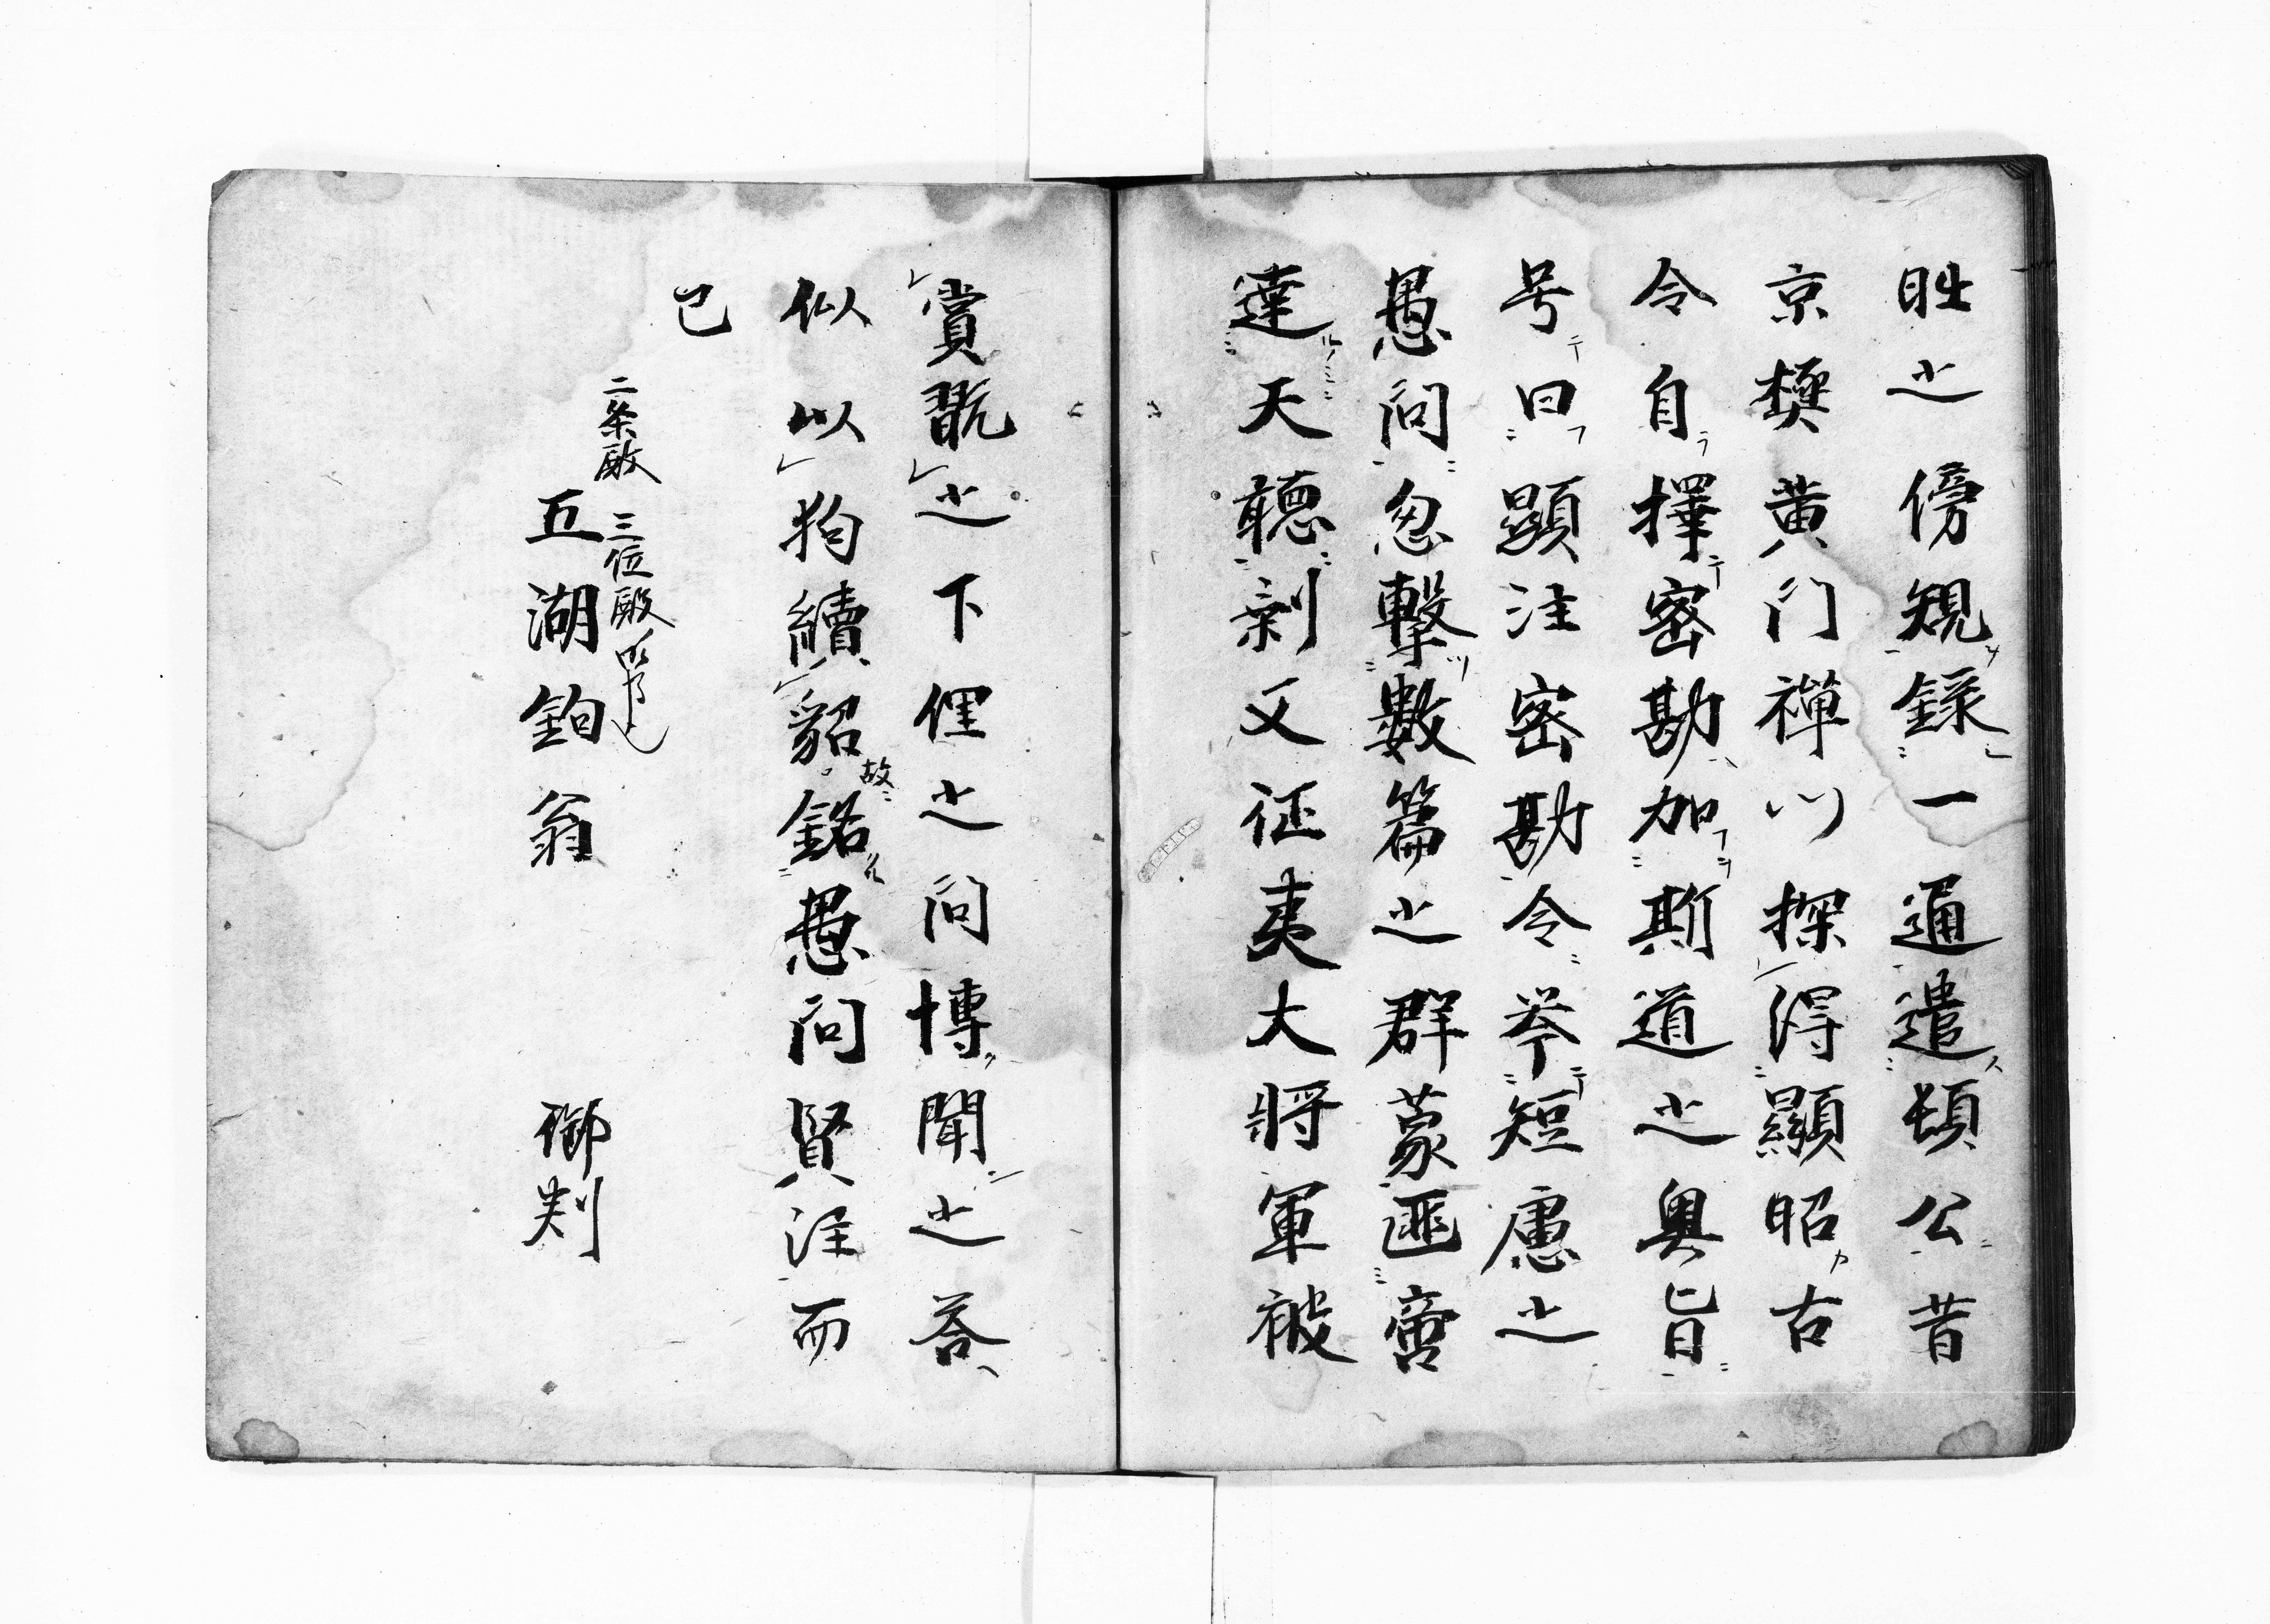 眦之傍規録一通遣頓公昔
京極黄門禅門探得顕昭古
今自擇密勘加斯道之奥旨
号曰顕注密勘今答短慮之
愚問忽撃數篇之群蒙匪啻
達天聴剰又征夷大将軍被
賞翫之下俚之問博聞之答
似以狗續貂故銘愚問賢注而
已
二条殿 三位殿
五湖釣翁 御判